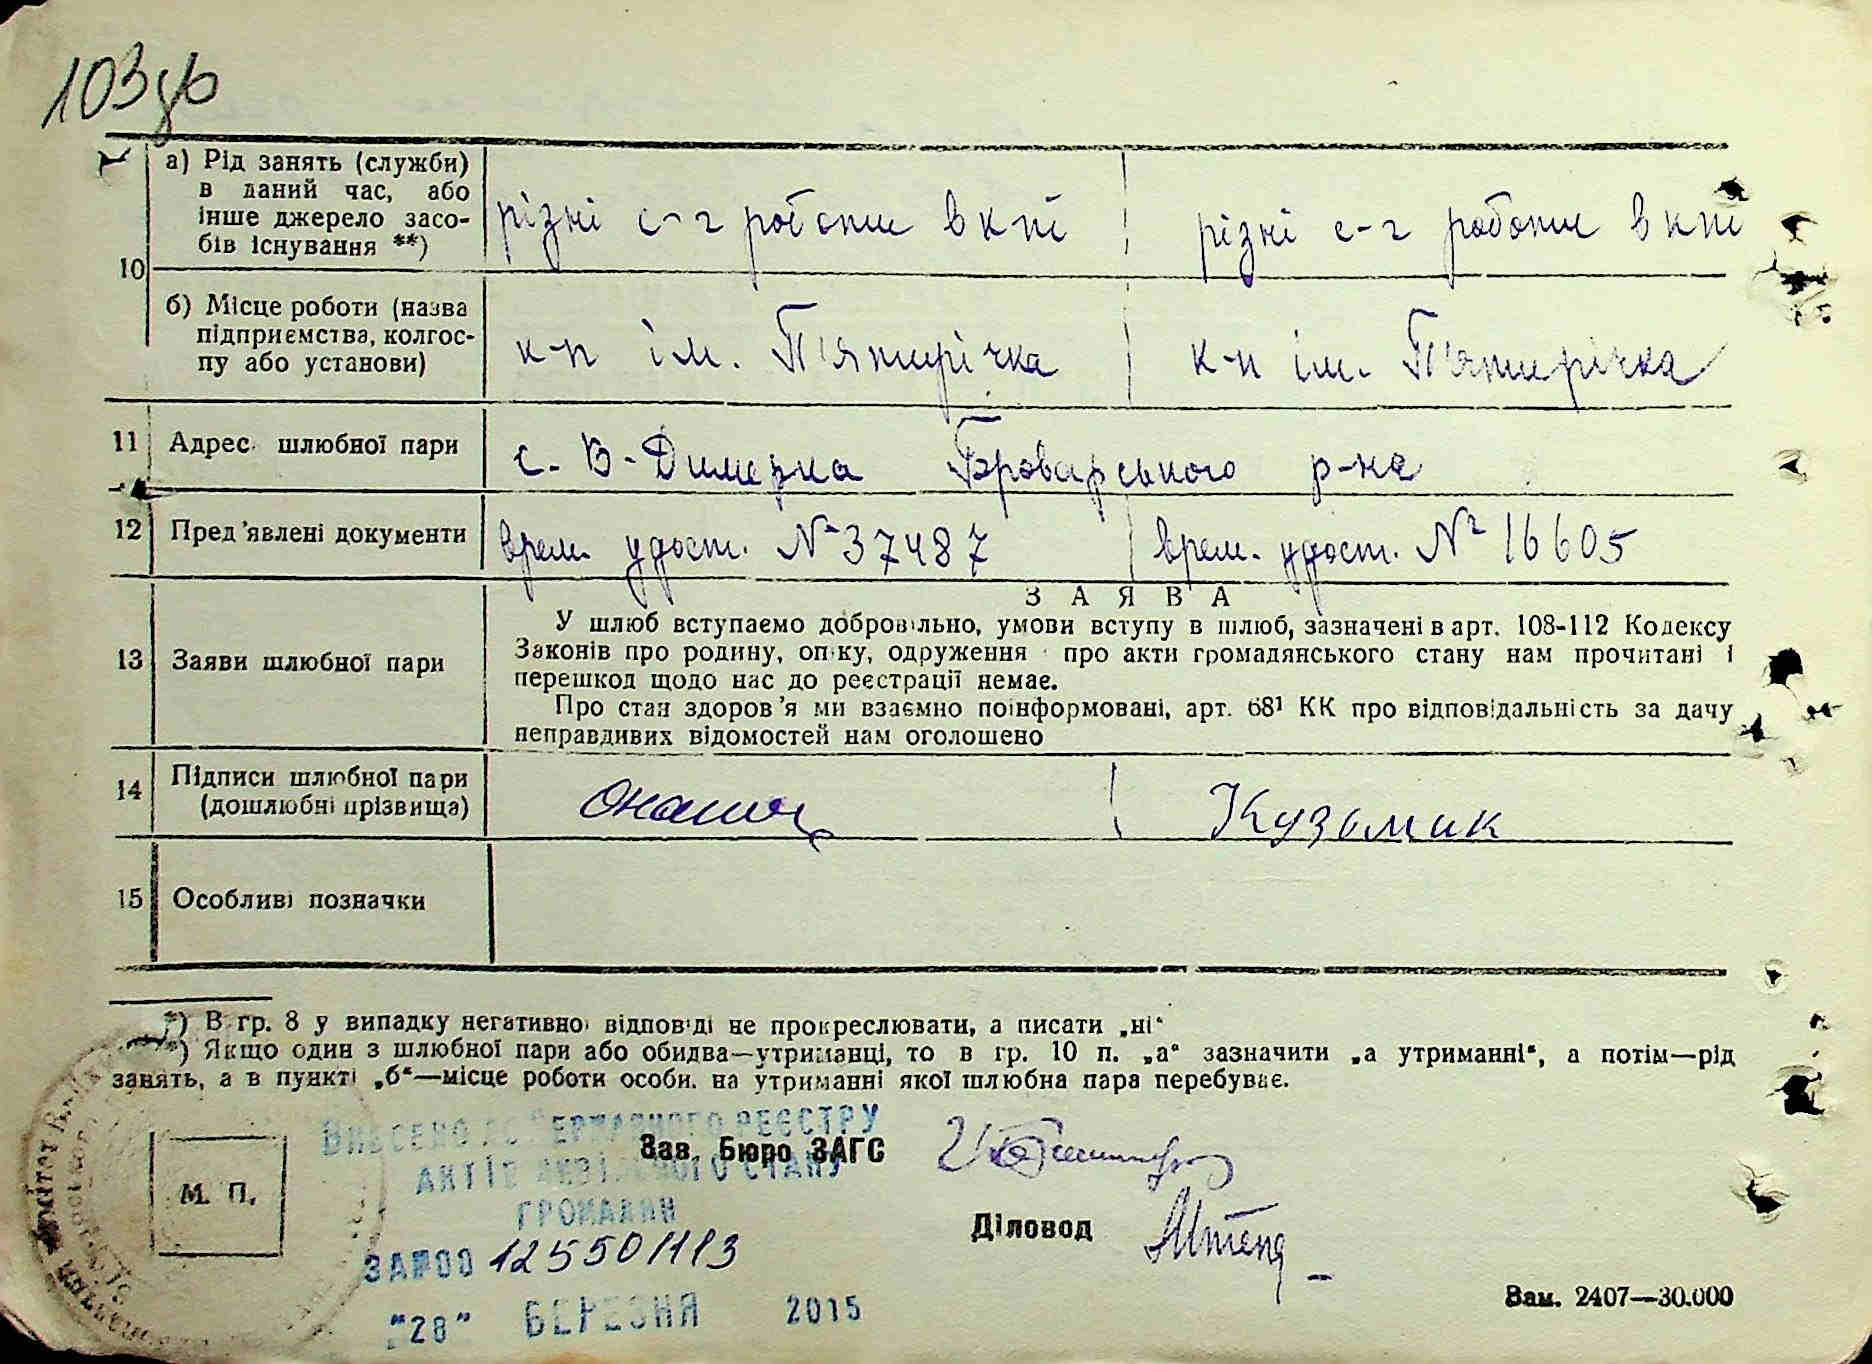 103зв
а) Рід занять (служби)
в даний час, або
інше джерело засо-
бів існування **)
різні с-г роботи в кпі
різні с-г роботи в кпі
10
б) Місце роботи (назва
підприємства, колгос-
пу або установи)
к-п ім. П'ятирічка
к-п ім. П'ятирічка
11 Адрес шлюбної пари
с. В-Димерка Броварського р-на
12 Пред'явлені документи
врем. удост. № 37487
врем. удост. № 16605
13 Заяви шлюбної пари
ЗАЯВА
У шлюб вступаємо добровільно, умови вступу в шлюб, зазначені в арт. 108-112 Кодексу
Законів про родину, опіку, одруження і про акти громадянського стану нам прочитані і
перешкод щодо нас до реєстрації немає.
Про стан здоров'я ми взаємно поінформовані, арт. 68¹ КК про відповідальність за дачу
неправдивих відомостей нам оголошено
14 Підписи шлюбної пари
(дошлюбні прізвища)
Кузьмик
15 Особливі позначки
*) В гр. 8 у випадку негативної відповіді не прокреслювати, а писати „ні“
**) Якщо один з шлюбної пари або обидва—утриманці, то в гр. 10 п. „а“ зазначити „а утриманні“, а потім—рід
занять, а в пункті „б“—місце роботи особи. на утриманні якої шлюбна пара перебуває.
ВНЕСЕНО ДО ДЕРЖАВНОГО РЕЄСТРУ
АКТІВ ЦИВІЛЬНОГО СТАНУ
ГРОМАДЯН
Зав. Бюро ЗАГС
М. П.
Діловод
ЗА №00 125501113
"28" БЕРЕЗНЯ 2015
Зам. 2407—30.000